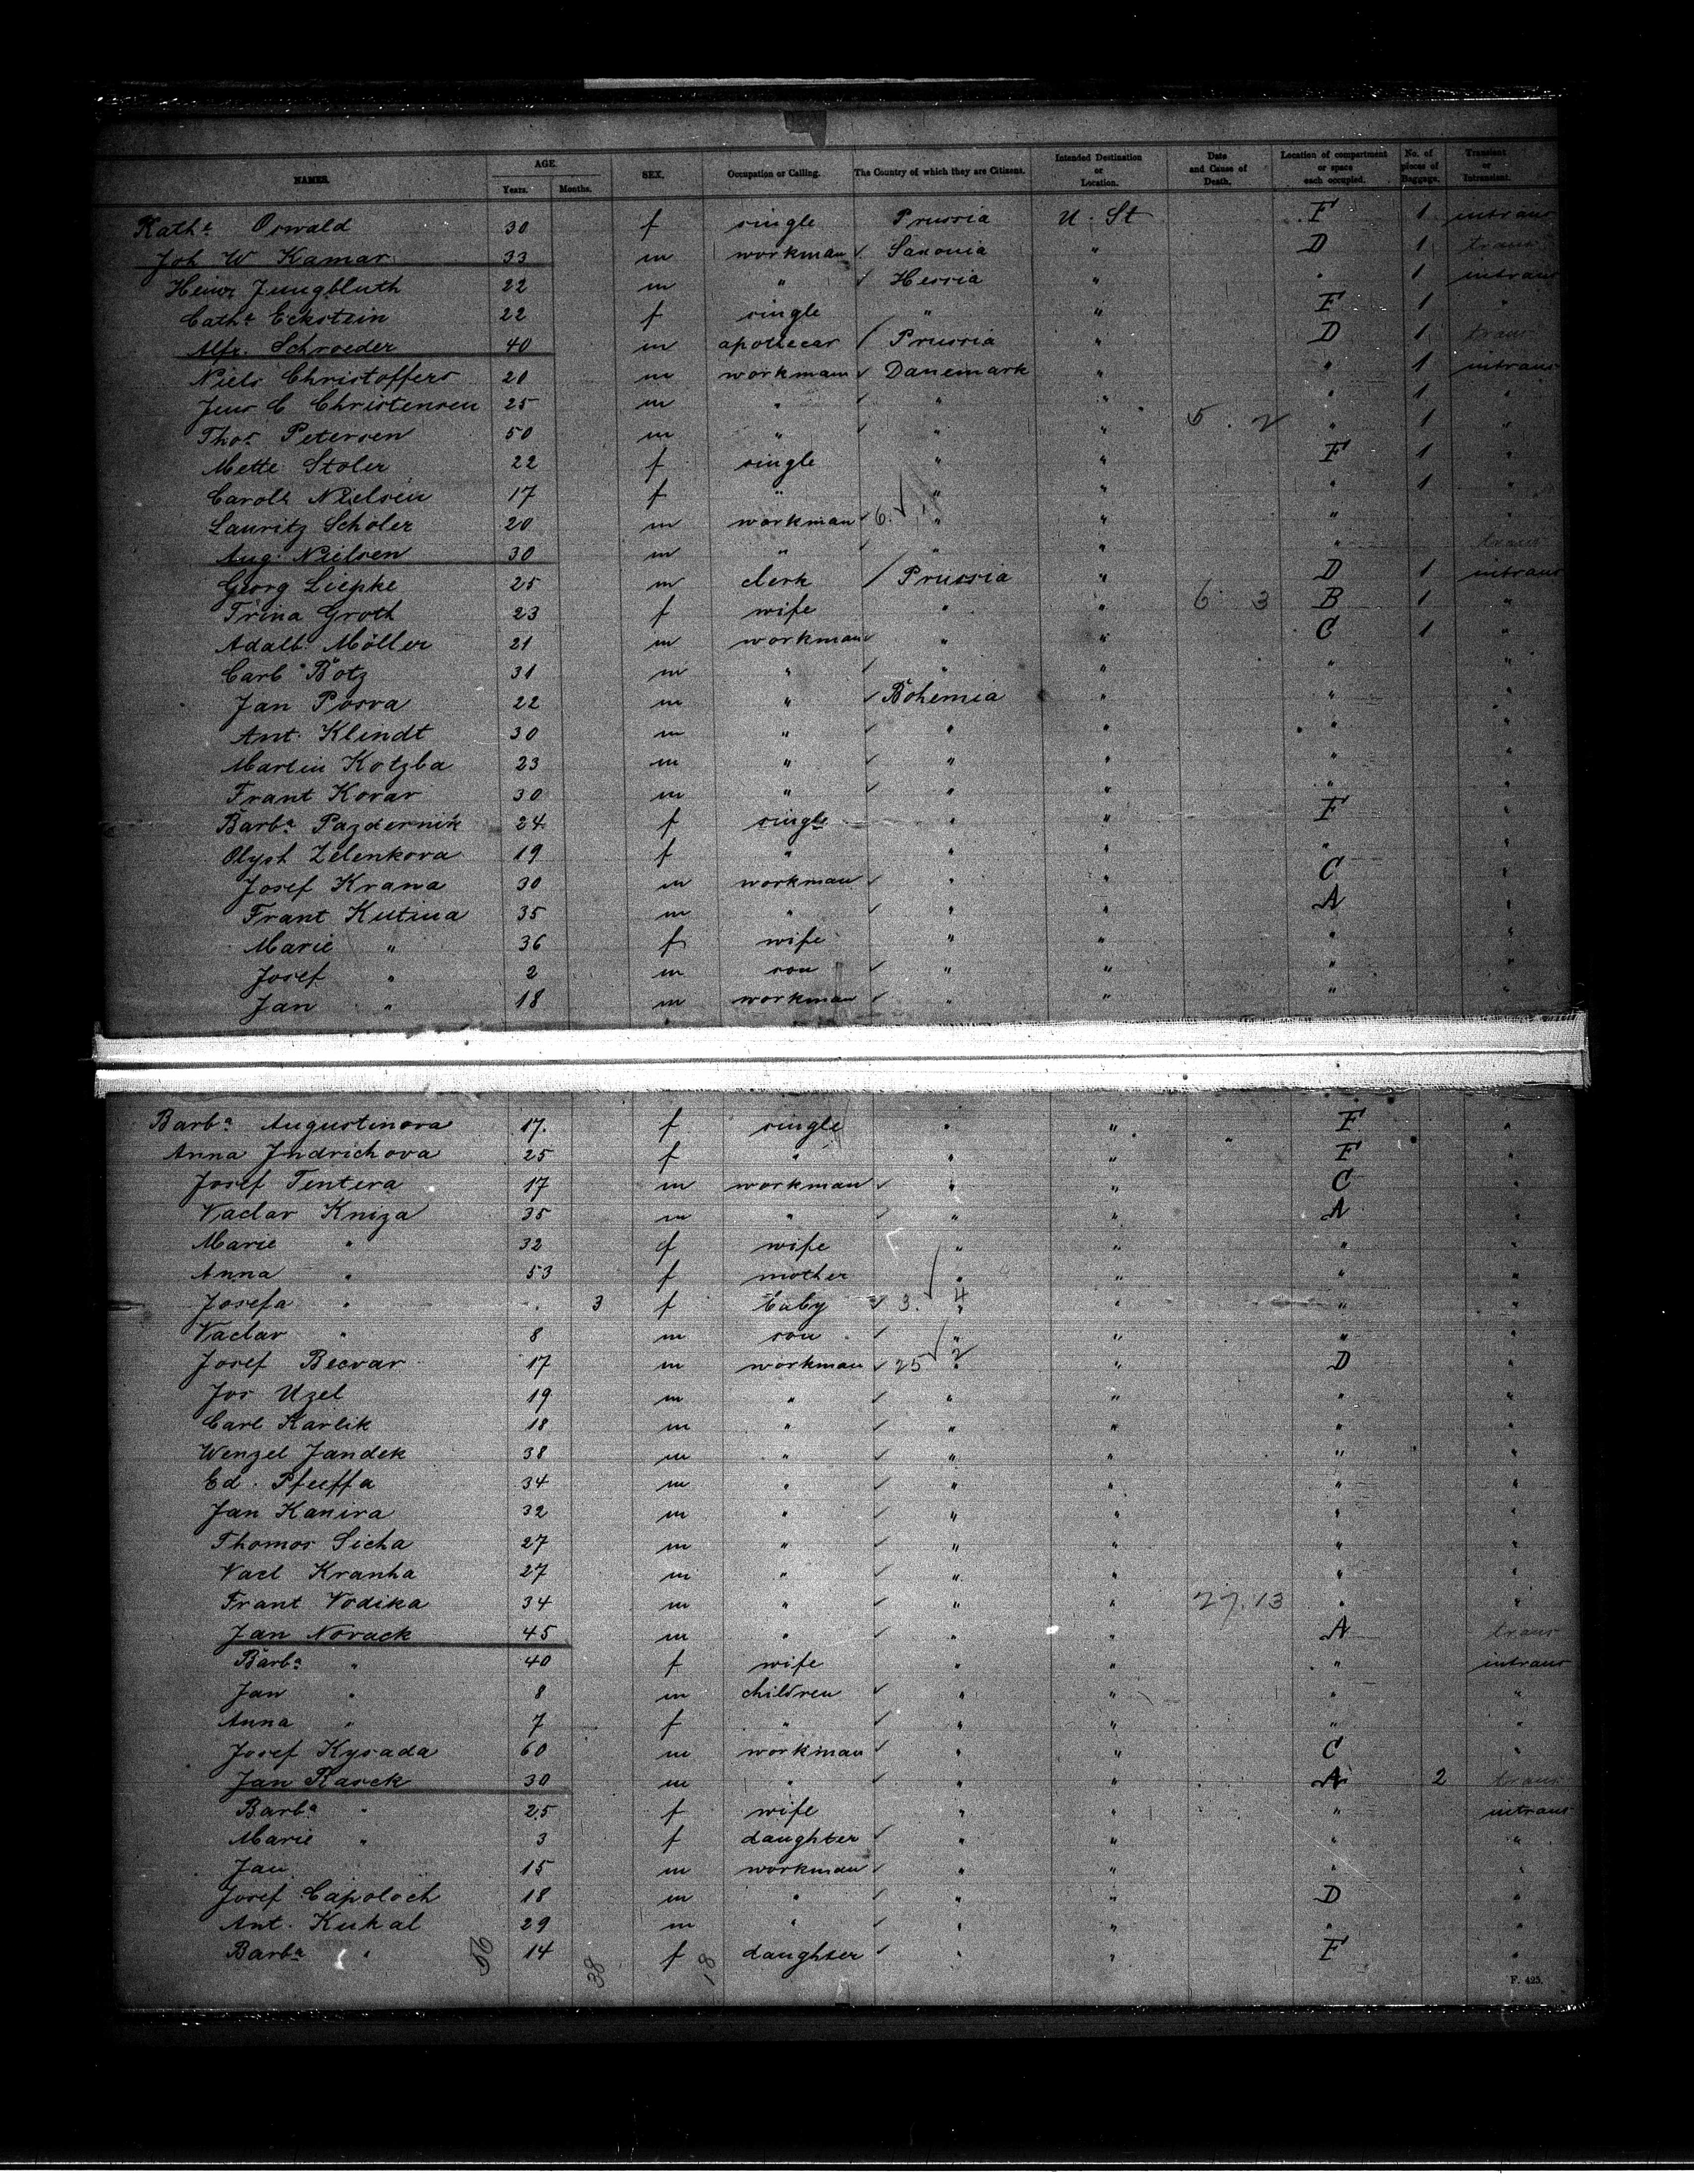 NAMES. AGE. Years. Months. SEX. Occupation or Calling. The Country of which they are Citizens. Intended Destination or Location. Date and Cause of Death. Location of compartment or space each occupied. No. of pieces of Baggage. Transient or Intransient.
Kathe Oswald 30 f single Prussia U. St F 1 intrans
Joh W Kamar 33 m workman ✓ Saxonia " D 1 trans
Heinr Jungbluth 22 m " ✓ Hessia " " 1 intrans
Catha Eckstein 22 f single " " F 1 "
Alfr. Schroeder 40 m apothecar / Prussia " D 1 trans
Niels Christoffers 20 m workman ✓ Danemark " " 1 intrans
Jens C Christensen 25 m " ✓ " " " 1 "
Thos Petersen 50 m " ✓ " " 5 . 2 " 1 "
Mette Stoler 22 f single " " F 1 "
Carole Nielsen 17 f " " " " 1 "
Lauritz Scholer 20 m workman ✓ 6. ✓ " " " "
Aug. Nielsen 30 m " ✓ " " " trans
Georg Liepke 25 m clerk / Prussia " D 1 intrans
Trina Groth 23 f wife " " 6 3 B 1 "
Adalb. Möller 21 m workman ✓ " " C 1 "
Carl Botz 31 m " ✓ " " " "
Jan Posva 22 m " ✓ Bohemia " " "
Ant. Klindt 30 m " ✓ " " " "
Martin Kotzba 23 m " ✓ " " " "
Frant Kovar 30 m " ✓ " " " "
Barba Pazdernik 24 f single " " F "
Olysh Zelenkova 19 f " " " " "
Josef Krana 30 m workman ✓ " " C "
Frant Kutina 35 m " ✓ " " A "
Marie " 36 f wife " " " "
Josef " 2 m son ✓ " " " "
Jan " 18 m workman ✓ " " " "
Barba Augustinova 17. f single " " F "
Anna Jndrichova 25 f " " " F "
Josef Tentera 17 m workman ✓ " " C "
Vaclav Kniza 35 m " ✓ " " A "
Marie " 32 f wife " " " "
Anna " 53 f mother " " " "
Josefa " . 3 f baby ✓ 3. ✓ 4 " " " "
Vaclav " 8 m son ✓ " " " "
Josef Becvar 17 m workman ✓ 25 ✓ 2 " " D "
Jos Uzel 19 m " ✓ " " " "
Carl Karlik 18 m " ✓ " " " "
Wenzel Jandek 38 m " ✓ " " " "
Ed. Pfeiffa 34 m " ✓ " " " "
Jan Kanira 32 m " ✓ " " " "
Thomas Sicha 27 m " ✓ " " " "
Vacl Kranha 27 m " ✓ " " " "
Frant Vodika 34 m " ✓ " " 27.13 " "
Jan Novack 45 m " ✓ " " A trans
Barba " 40 f wife " " " intrans
Jan " 8 m children ✓ " " " "
Anna " 7 f " ✓ " " " "
Josef Kysada 60 m workman ✓ " " C "
Jan Rasek 30 m " ✓ " " A 2 trans
Barba " 25 f wife " " " intrans
Marie " 3 f daughter ✓ " " " "
Jan 15 m workman ✓ " " " "
Josef Capoloch 18 m " ✓ " " D "
Ant. Kukal 29 m " ✓ " " " "
Barba " 14 f daughter ✓ " " F "
56 38 18
F. 425.